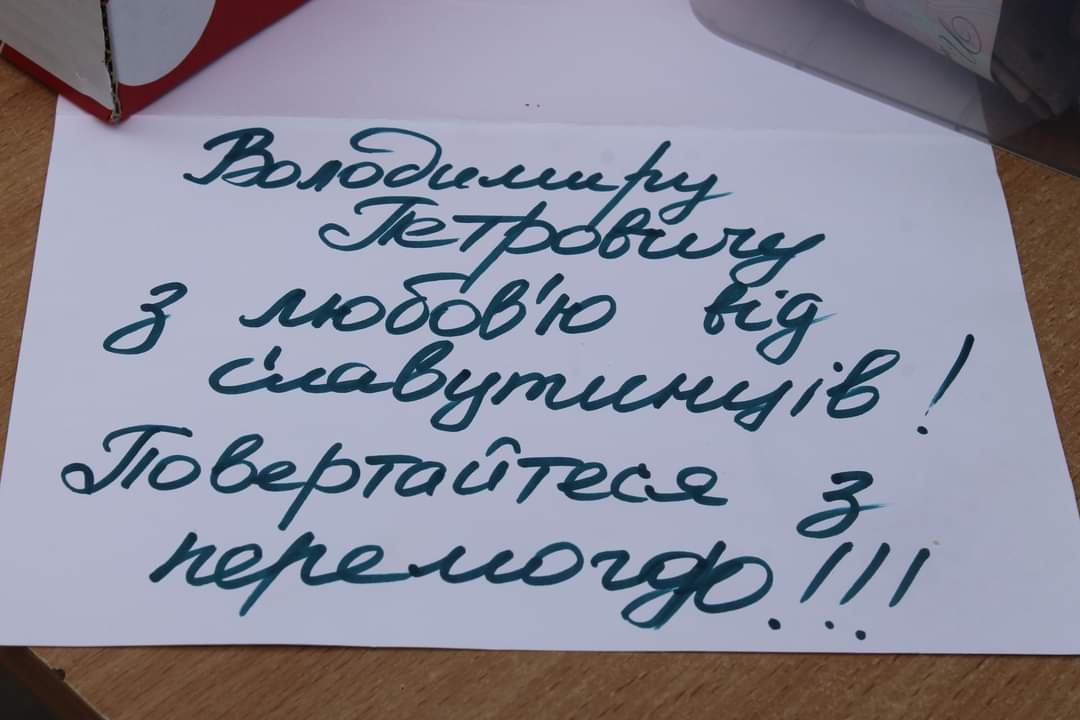 Володимиру
Петровичу
з любов'ю від
славутинців!
Повертайтеся з
перемогою!!!